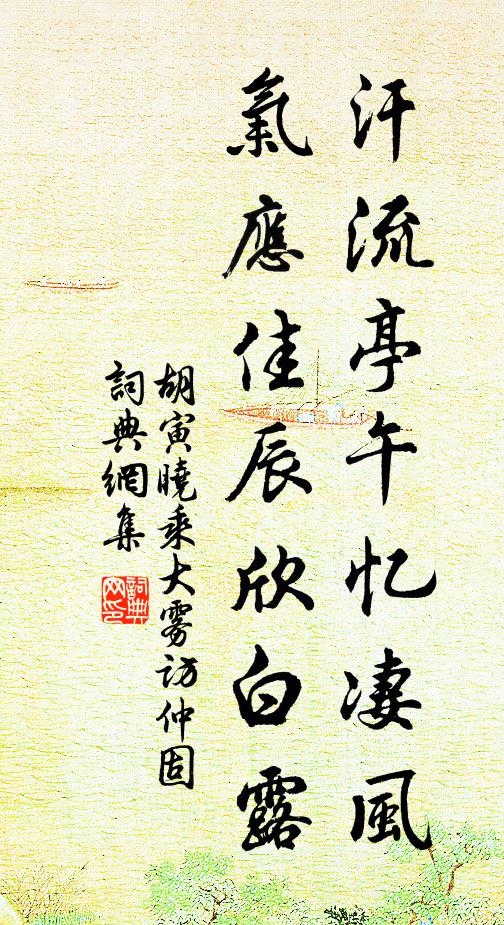 汗流亭午忆凄風
氣應佳辰欣白露
胡寅曉乘大雾访仲固
詞典網集
詞典
网印